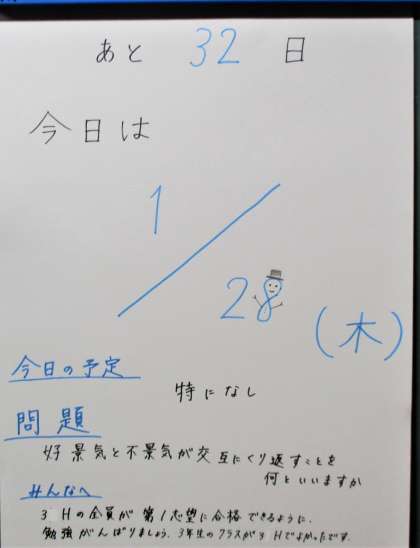 あと 32 日
今日は
1/28 (木)
今日の予定
特になし
問題
好景気と不景気が交互にくり返すことを
何といいますか
みんなへ
3Hの全員が第1志望に合格できるように、
勉強がんばりましょう。3年生のクラスが3Hでよかったです。